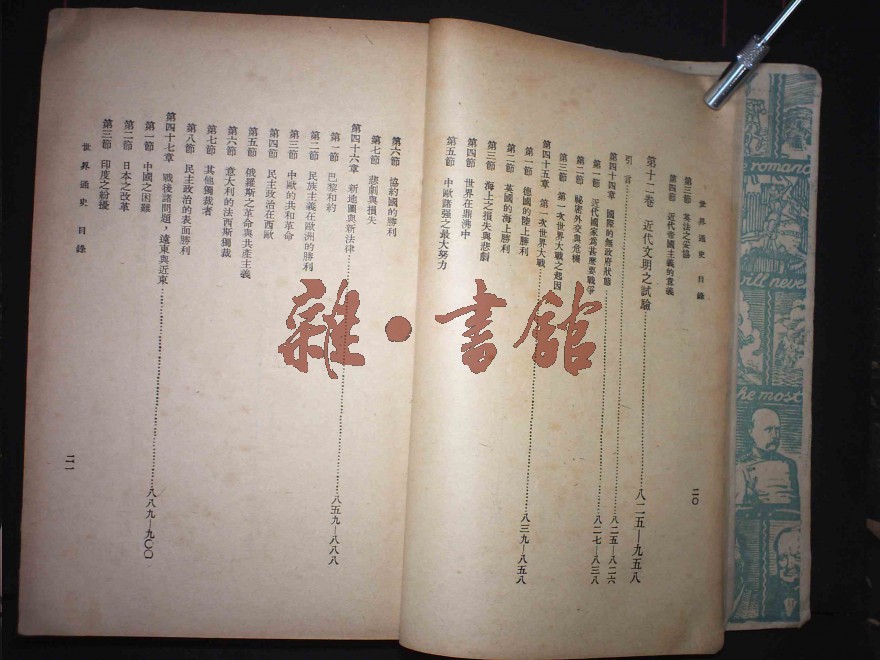 世界通史 目錄
二〇
第三節 英法之妥協
第四節 近代帝國主義的意義
第十二卷 近代文明之試驗……八二五—九五八
引言……八二五—八二六
第四十四章 國際的無政府狀態……八二七—八三八
第一節 近代國家為甚麼要戰爭
第二節 秘密外交與危機
第三節 第一次世界大戰之起因
第四十五章 第一次世界大戰……八三九—八五八
第一節 德國的陸上勝利
第二節 英國的海上勝利
第三節 海上之損失與悲劇
第四節 世界在鼎沸中
第五節 中歐諸强之最大努力
第六節 協約國的勝利
第七節 悲劇與損失
第四十六章 新地圖與新法律……八五九—八八八
第一節 巴黎和約
第二節 民族主義在歐洲的勝利
第三節 中歐的共和革命
第四節 民主政治在西歐
第五節 俄羅斯之革命與共產主義
第六節 意大利的法西斯獨裁
第七節 其他獨裁者
第八節 民主政治的表面勝利
第四十七章 戰後諸問題,遠東與近東……八八九—九〇〇
第一節 中國之困難
第二節 日本之改革
第三節 印度之紛擾
世界通史 目錄
二一
雜·書館
e romance
will never
he most